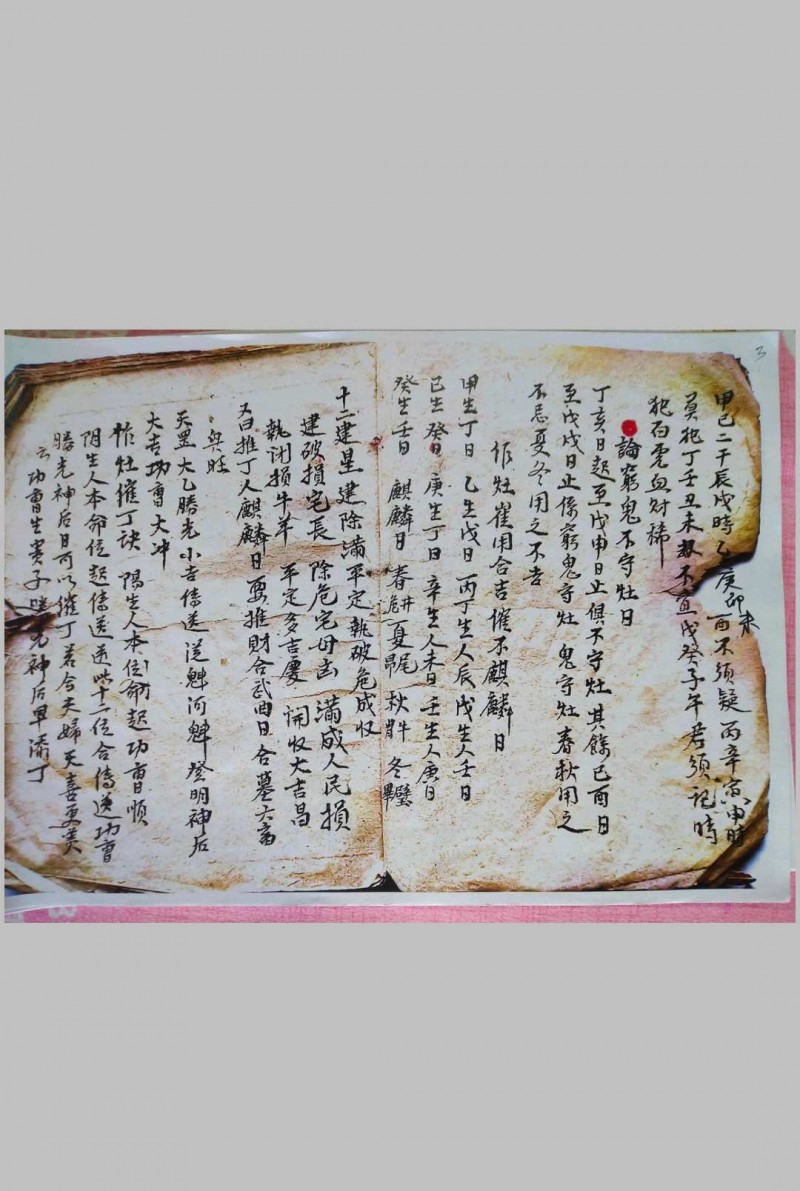 3
甲己二干辰戌時乙庚卯未酉不須疑丙辛寅申時
莫犯丁壬丑未报不宜戊癸子午君須記時
犯白虎血財稀
論窮鬼不守灶日
丁亥日起至戊申日止俱不守灶其餘己酉日
至戊戌日止係窮鬼守灶鬼守灶春秋用之
不忌夏冬用之不吉
作灶崔用合吉催不麒麟日
甲生丁日 乙生戊日 丙丁生人辰 戊生人壬日
己生癸日 庚生丁日 辛生人未日 壬生人庚日
癸生壬日 麒麟日 春井 夏尾 秋牛 冬壁
十二建星建除滿平定執破危成收
建破損宅長 除危宅母凶 滿成人民損
執闭損牛羊 平定多吉慶 開收大吉昌
又曰推丁人麒麟日要推財合武曲日合墓六畜
興旺
天罡太乙勝光小吉傳送從魁河魁登明神后
大吉功曹大冲
作灶催丁訣 陽生人本位命起功曹順
阴生人本命位起傳送逆此十二位合傳送功曹
勝光神后日可以催丁若合夫婦天喜更美
云功曹生貴子勝光神后早添丁